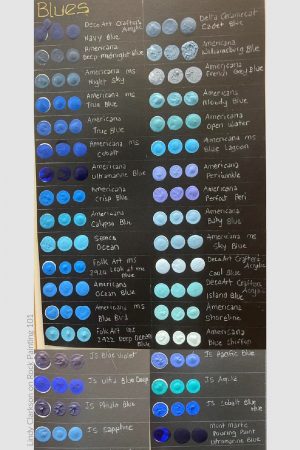 BLUES
DecoArt Crafter's
Acrylic
Navy Blue
Americana
Deep Midnight Blue
Americana ms
Night Sky
Americana ms
True Blue
Americana
True Blue
Americana ms
Cobalt
Americana
Ultramarine Blue
Americana
Crisp Blue
Americana
Calypso Blue
Semco
Ocean
Folk Art ms
2920 Look at me
Blue
Americana
Ocean Blue
Americana ms
Blue Bird
Folk Art ms
2922 Deep Ocean
Blue
Delta Ceramcoat
Cadet Blue
Americana
Williamsburg Blue
Americana
French Grey Blue
Americana
Moody Blue
Americana
Open Water
Americana ms
Blue Lagoon
Americana
Periwinkle
Americana
Perfect Peri
Americana
Baby Blue
Americana ms
Sky Blue
DecoArt Crafters
Acrylic
Cool Blue
DecoArt Crafters
Acrylic
Island Blue
Americana
Shoreline
Americana
Blue Chiffon
JS Blue Violet
JS Ultra Blue Deep
JS Phthalo Blue
JS Sapphire
JS Pacific Blue
JS Aqua
JS Cobalt Blue
Mont Marte
Pouring Paint
Ultramarine Blue
Lindy Clarkson on Rock Painting 101